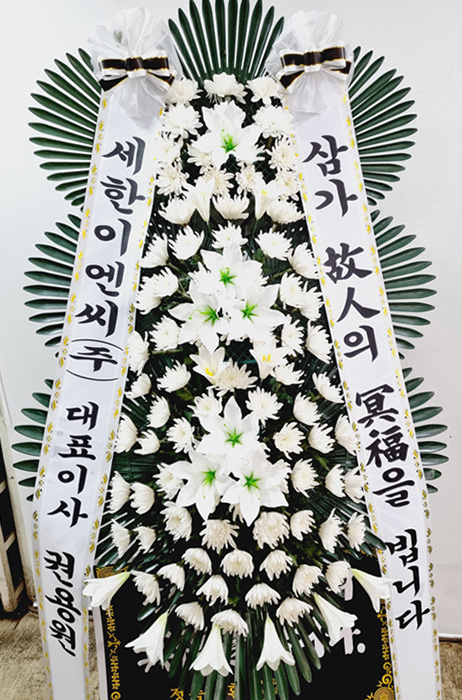 세한이엔씨(주) 대표이사 권용원
삼가 故人의 冥福을 빕니다